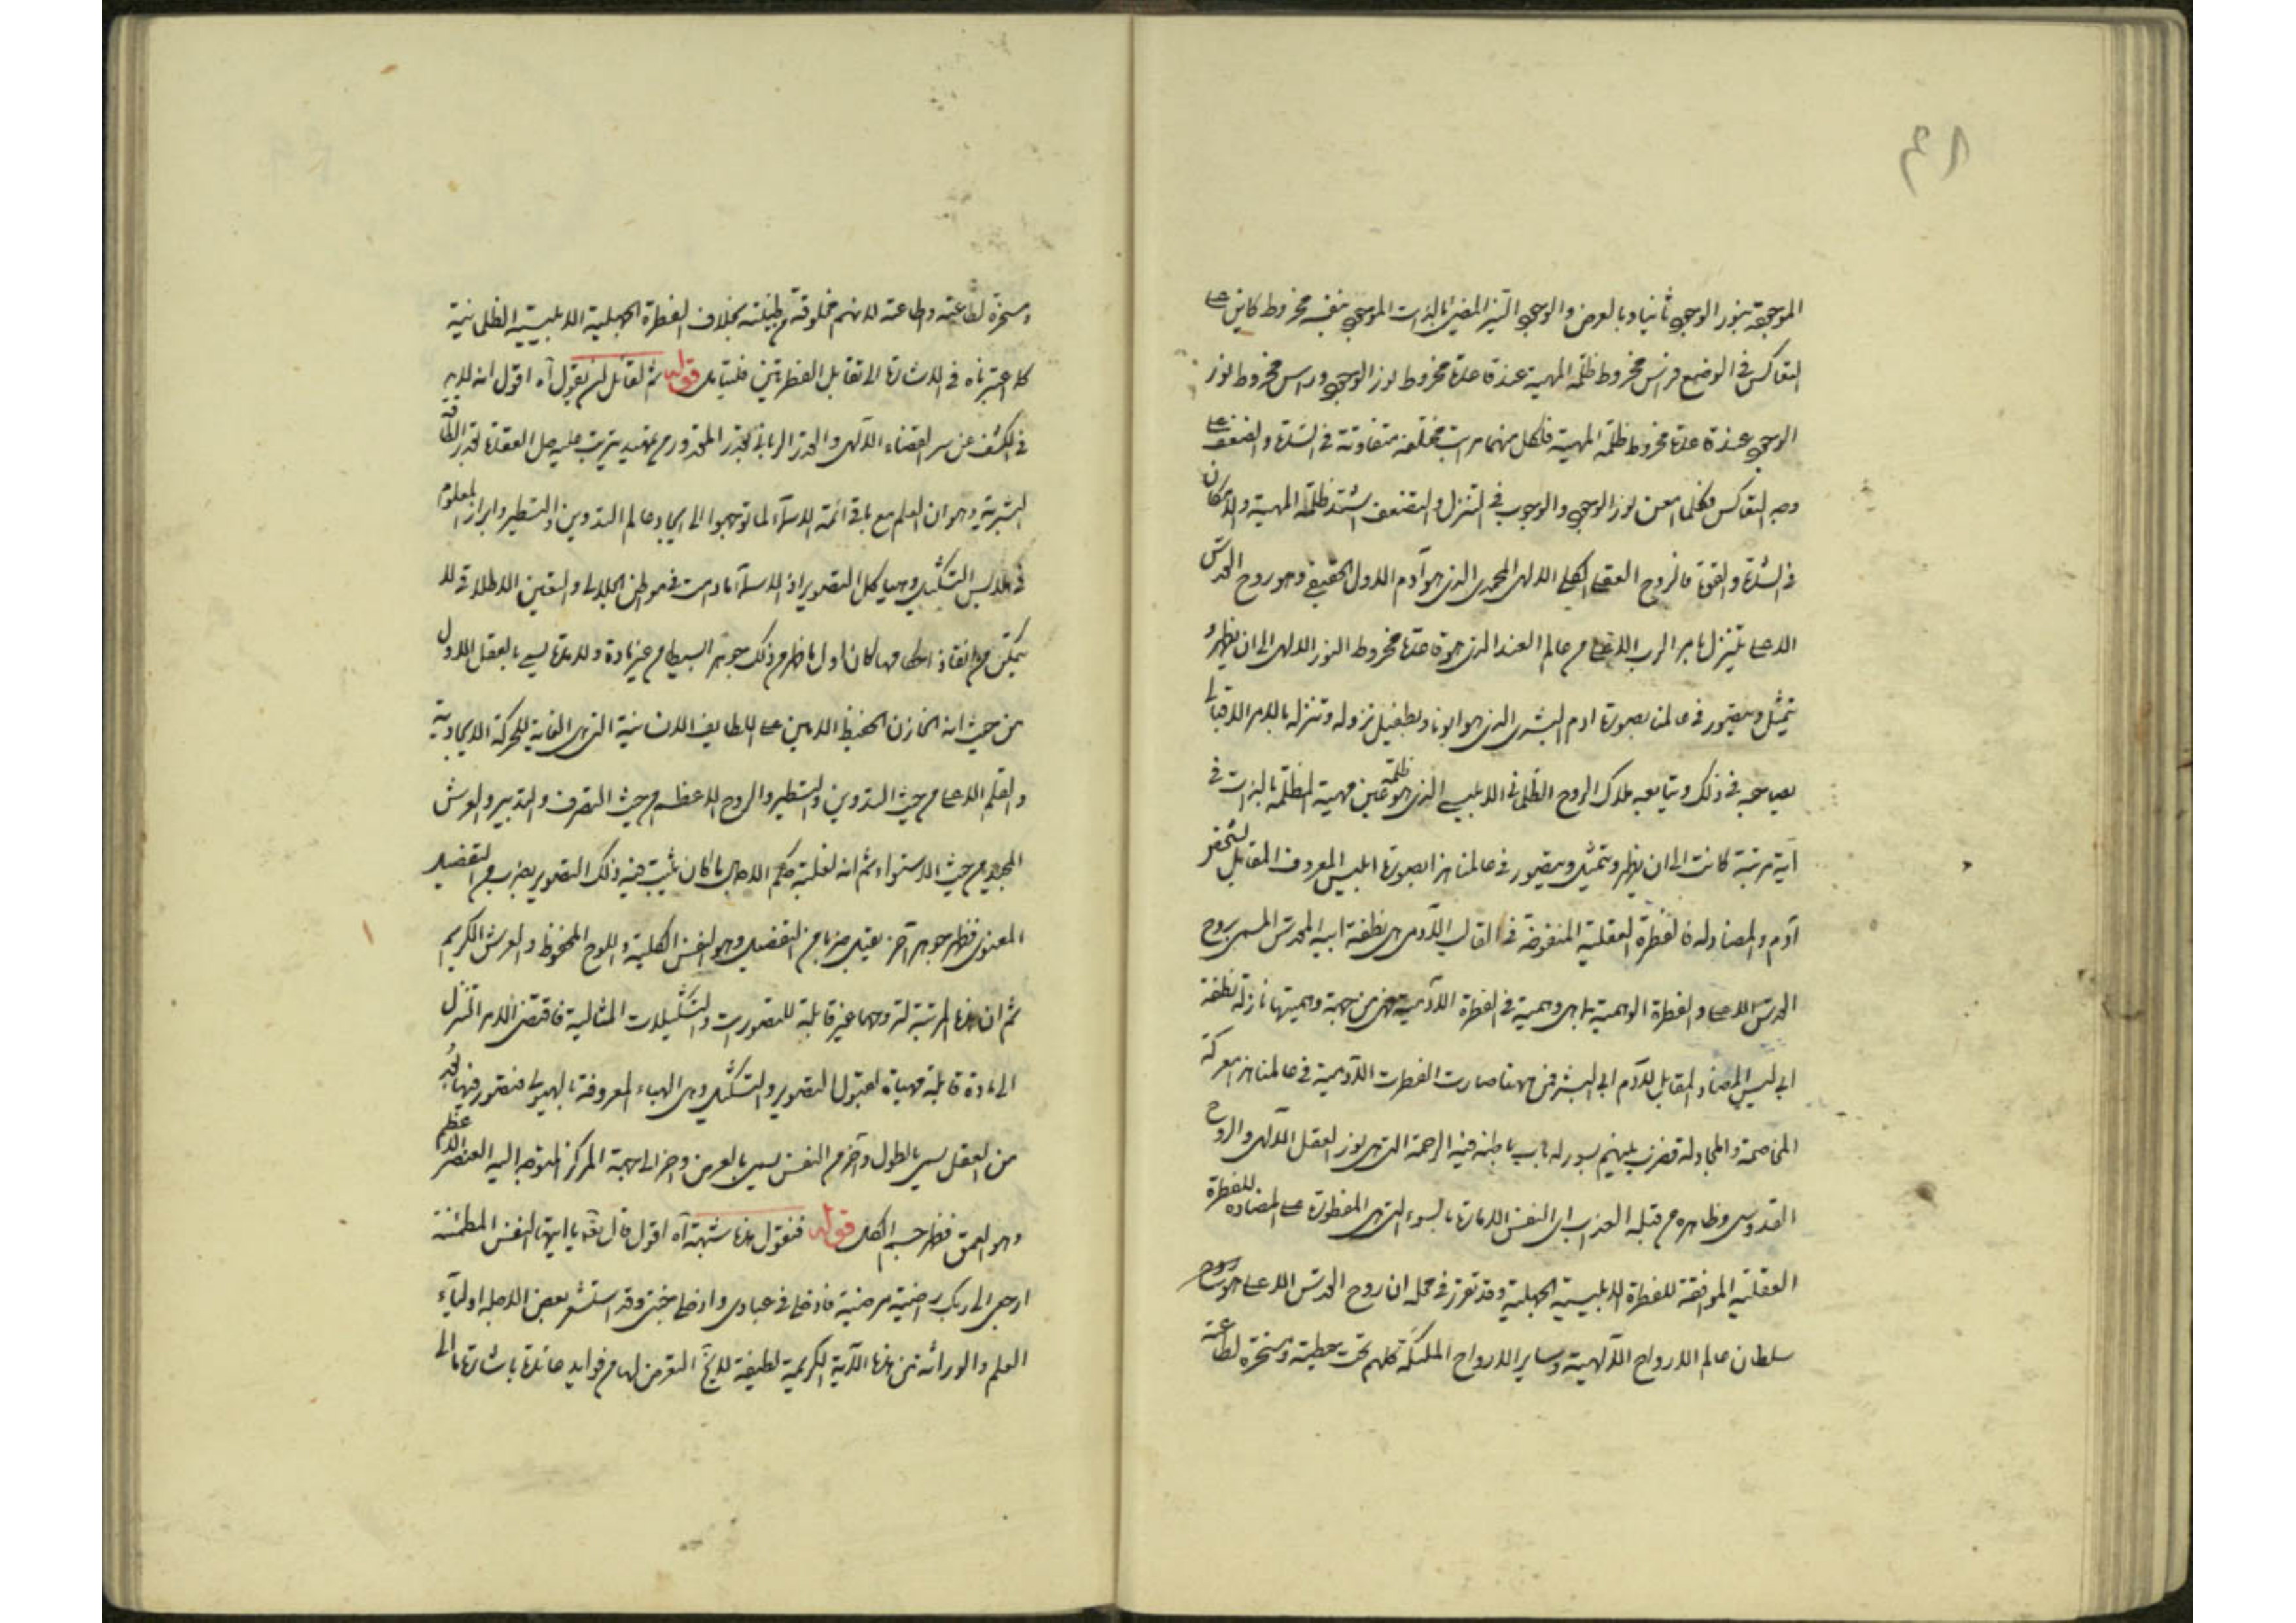 ٤٨
الموجهة بنور الوجود ثانيا وبالعرض والوجود النير المضئ بالذات الموجود بنفسه مخروط كاين على
التعاكس فى الوضع فرأس مخروط ظلمة المهية عند قاعدة مخروط نور الوجود وراس مخروط نور
الوجود عند قاعدة مخروط ظلمة المهية فلكل منهما مراتب مختلفة متفاوتة فى الشدة والضعف على
وجه التعاكس فكلما امعن نور الوجود والوجوب فى التنزل والتضعف اشتد ظلمة المهية والامكان
فى الشدة والقوة فالروح العقلى الكلى الالهى المحمدى الذى هو آدم الاول الحقيقى وهو روح القدس
الاعلى يتنزل بامر الرب الاعلى من عالم العند الذى هو قاعدة مخروط النور الالهى الى ان يظهر و
يتمثل ويتصور فى عالمنا بصورة ادم البشرى الذى هو ابونا وبطفيل نزوله وتنزله بالامر الاقبالى
يصاحبه فى ذلك ويتابعه ملاك الروح الظلمانى الابليسى الذى هو عين ظلمة مهية المظلمة بالذات فى
آية مرتبة كانت الى ان يظهر ويتمثل ويتصور فى عالمنا هذا بصورة ابليس المعروف المقابل لشخص
آدم والمضاد له فالفطرة العقلية المنفوخة فى القالب الآدمى هى نطفة ابيه المقدس المسمى بروح
القدس الاعلى والفطرة الوهمية بما هى وهمية فى الفطرة الآدمية فهى من جهة وهميتها نازلة نطفة
ابى ليس المضاد المقابل لآدم ابى البشر فمن ههنا صارت الفطرت الآدمية فى عالمنا هذا معركة
المخاصمة والمجادلة فضرب بينهم بسور له باب باطنه فيه الرحمة التى هى نور العقل الالهى والروح
القدوسى وظاهره من قبله العذاب اى النفس الامارة بالسوء التى هى المفطورة على المضاده للفطرة
العقلية الموافقة للفطرة الابليسية الجهلية وقد تقرر فى محله ان روح القدس الاعلى هو
سلطان عالم الارواح الالهية وساير الارواح الملكية كلهم تحت حيطته ومسخرة لطاعته
ومسخرة لطاعته وطاعته لانهم مخلوقة من طينته بخلاف الفطرة الجهلية الابليسية الظلمانية
كما عبرناه فى الاشارة الى تقابل الفطرتين فليتامل قوله ثم لقائل ان يقول آه اقول انه لابد
فى الكشف عن سر القضاء الالهى والقدر الربانى بقدر المقدور من تمهيد يترتب عليه حل العقدة بقدر الطاقة
البشرية وهو ان العلم مع باقى ائمة الاسماء لما توجهوا الى ايجاد عالم التدوين والتسطير وابراز المعلوم
فى ملابس التشكيل وهياكل التصوير اذ الاسماء ما دامت فى مواطن الجلال والتعين الاطلاقى لا
يتمكن من انفاذ احكامها كان اول ما ظهر من ذلك جوهر البسيط من غير مادة ولا مدة يسمى بالعقل الاول
من حيث انه الخازن الحفيظ الامين على اللطايف الانسانية التى هى الغاية للحركة الايجادية
والقلم الاعلى من حيث التدوين والتسطير والروح الاعظم من حيث التصرف والتدبير والعرش
المجيد من حيث الاستواء ثم انه لغلبة حكم الاجمال ما كان يثبت فيه ذلك التصوير بضرب من التفصيل
المعنوى فظهر جوهر آخر يقبل ضربا من التفصيل وهو النفس الكلية واللوح المحفوظ والعرش الكريم
ثم ان هذه المرتبة لتروحها غير قابلة للتصورات والتشكيلات المثالية فاقتضى الامر التنزل
الى مادة قابلة مهياة لقبول التصوير والتشكيل وهى الهباء المعروفة بالهيولى فتصور فيها
من العقل يسمى بالطول وآخر من النفس يسمى بالعرض واخر الى جهة المركز المتوجه اليه العنصر الاعظم
وهو العمق فظهر جسم الكل قوله فنقول هذه شبهة آه اقول قال تعه يا ايتها النفس المطمئنة
ارجعى الى ربك راضية مرضية فادخلى فى عبادى وادخلى جنتى وقد استشعر بعض الاجلة اولياء
العلم والوراثة من هذه الآية الكريمة لطيفة التعرض لها من فوايد عائدة باشارتها الى